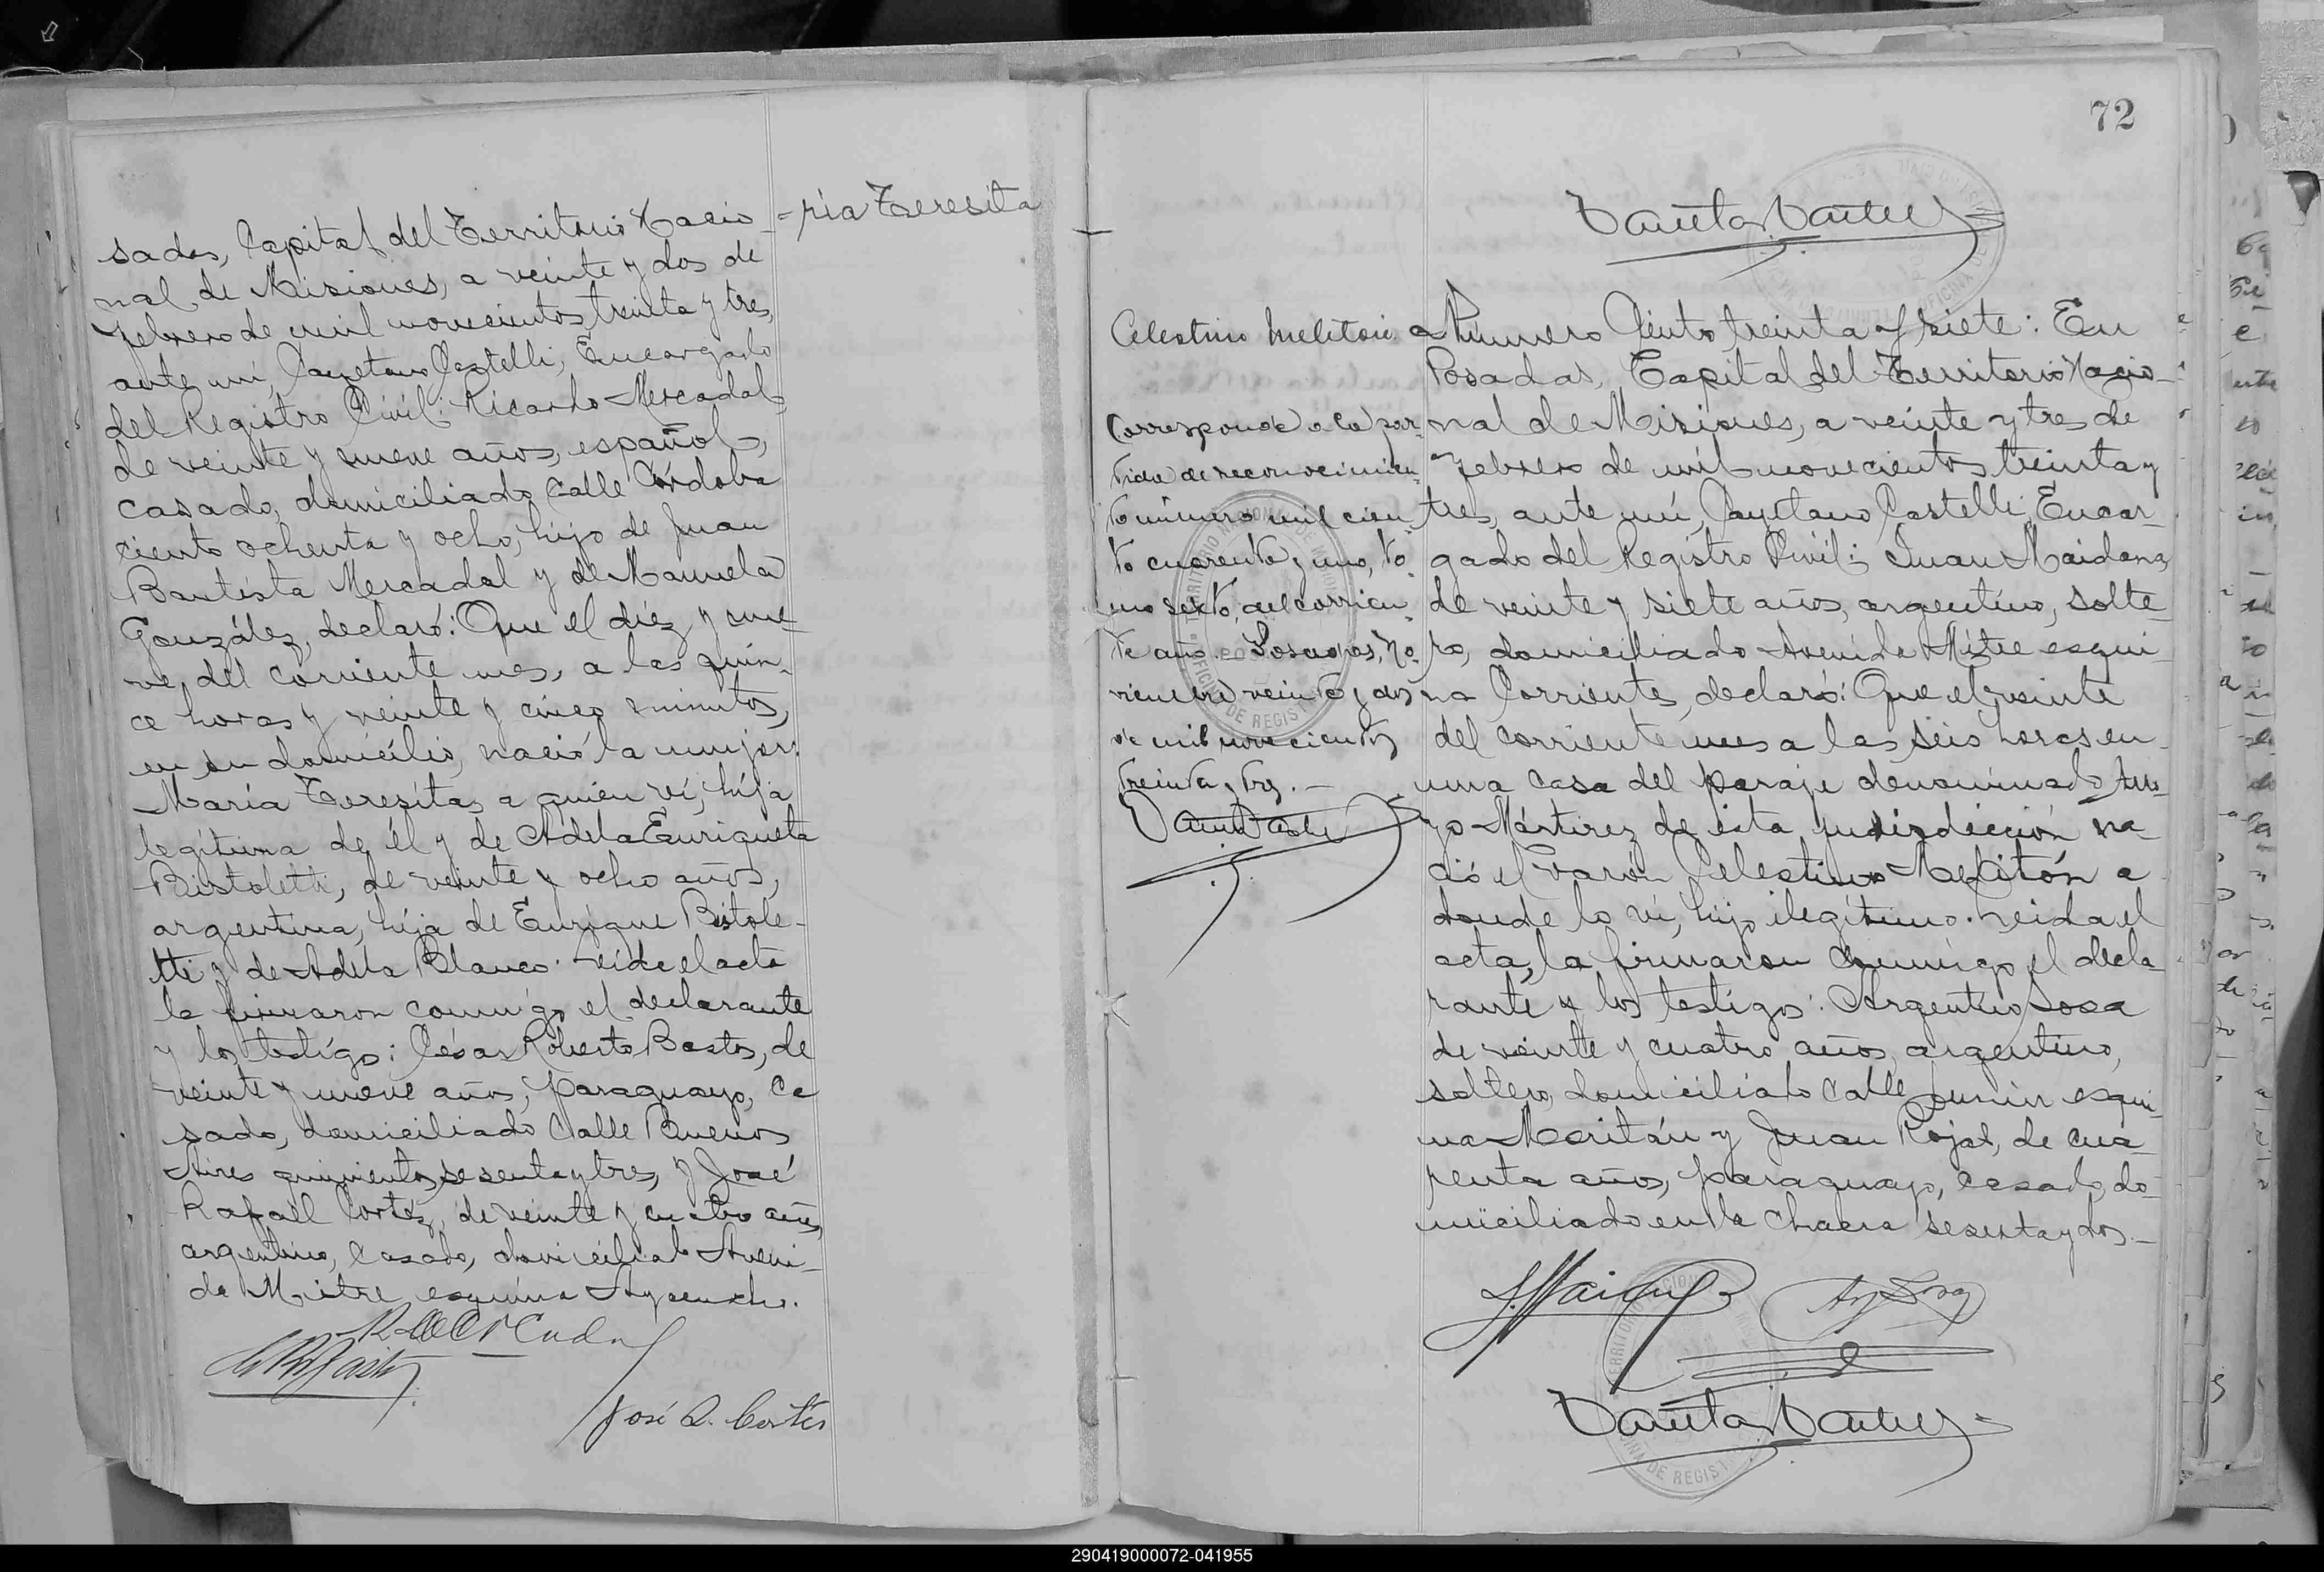 -ría Teresita
sadas, Capital del Territorio Nacio-
nal de Misiones, a veinte y dos de
Febrero de mil novecientos treinta y tres,
ante mí, Cayetano Castelli, Encargado
del Registro Civil: Ricardo Mercadal,
de veinte y nueve años, español,
casado, domiciliado calle Córdoba
ciento ochenta y ocho, hijo de Juan
Bautista Mercadal y de Manuela
González, declaró: Que el diez y nue-
ve del corriente mes, a las quin-
ce horas y veinte y cinco minutos,
en su domicilio, nació la mujer:
María Teresita, a quien ví, hija
legítima de él y de Adela Enriqueta
Bistoletti, de veinte y ocho años,
argentina, hija de Enrique Bistole-
tti y de Adela Blanco. Leida el acta
la firmaron conmigo el declarante
y los testigos: César Roberto Bastos, de
veinte y nueve años, paraguayo, ca
sado, domiciliado Calle Buenos
Aires quinientos sesenta y tres, y José
Rafaél Cortéz, de veinte y cuatro años,
argentino, casado, domiciliado Aveni-
da Mitre esquina Ayacucho.
José R. Cortés
72
Celestino Melitón
Numero Ciento treinta y siete: En
Posadas, Capital del Territorio Nacio-
nal de Misiones, a veinte y tres de
Febrero de mil novecientos treinta y
tres, ante mí, Cayetano Castelli, Encar-
gado del Registro Civil: Juan Maidana,
de veinte y siete años, argentino, solte-
ro, domiciliado Avenida Mitre esqui-
na Corrientes, declaró: Que el veinte
del corriente mes a las seis horas en
una casa del paraje denominado Arro-
yo Mártirez de esta jurisdicción na
ció el varón Celestino Melitón a
donde lo ví, hijo ilegítimo. Leida el
acta, la firmaron conmigo el decla-
rante y los testigos: Argentino Sosa
de veinte y cuatro años, argentino,
soltero, domiciliado calle Junin esqui-
na Moritán y Juan Rojas, de cua-
renta años, paraguayo, casado, do-
miciliado en la chacra sesenta y dos.-
Corresponde a la par-
tida de reconocimien-
to número mil cien-
to cuarenta y uno, to-
mo sexto, del corrien-
te año.- Posadas, No-
viembre veinte y dos
de mil novecientos
treinta y tres.-
290419000072-041955